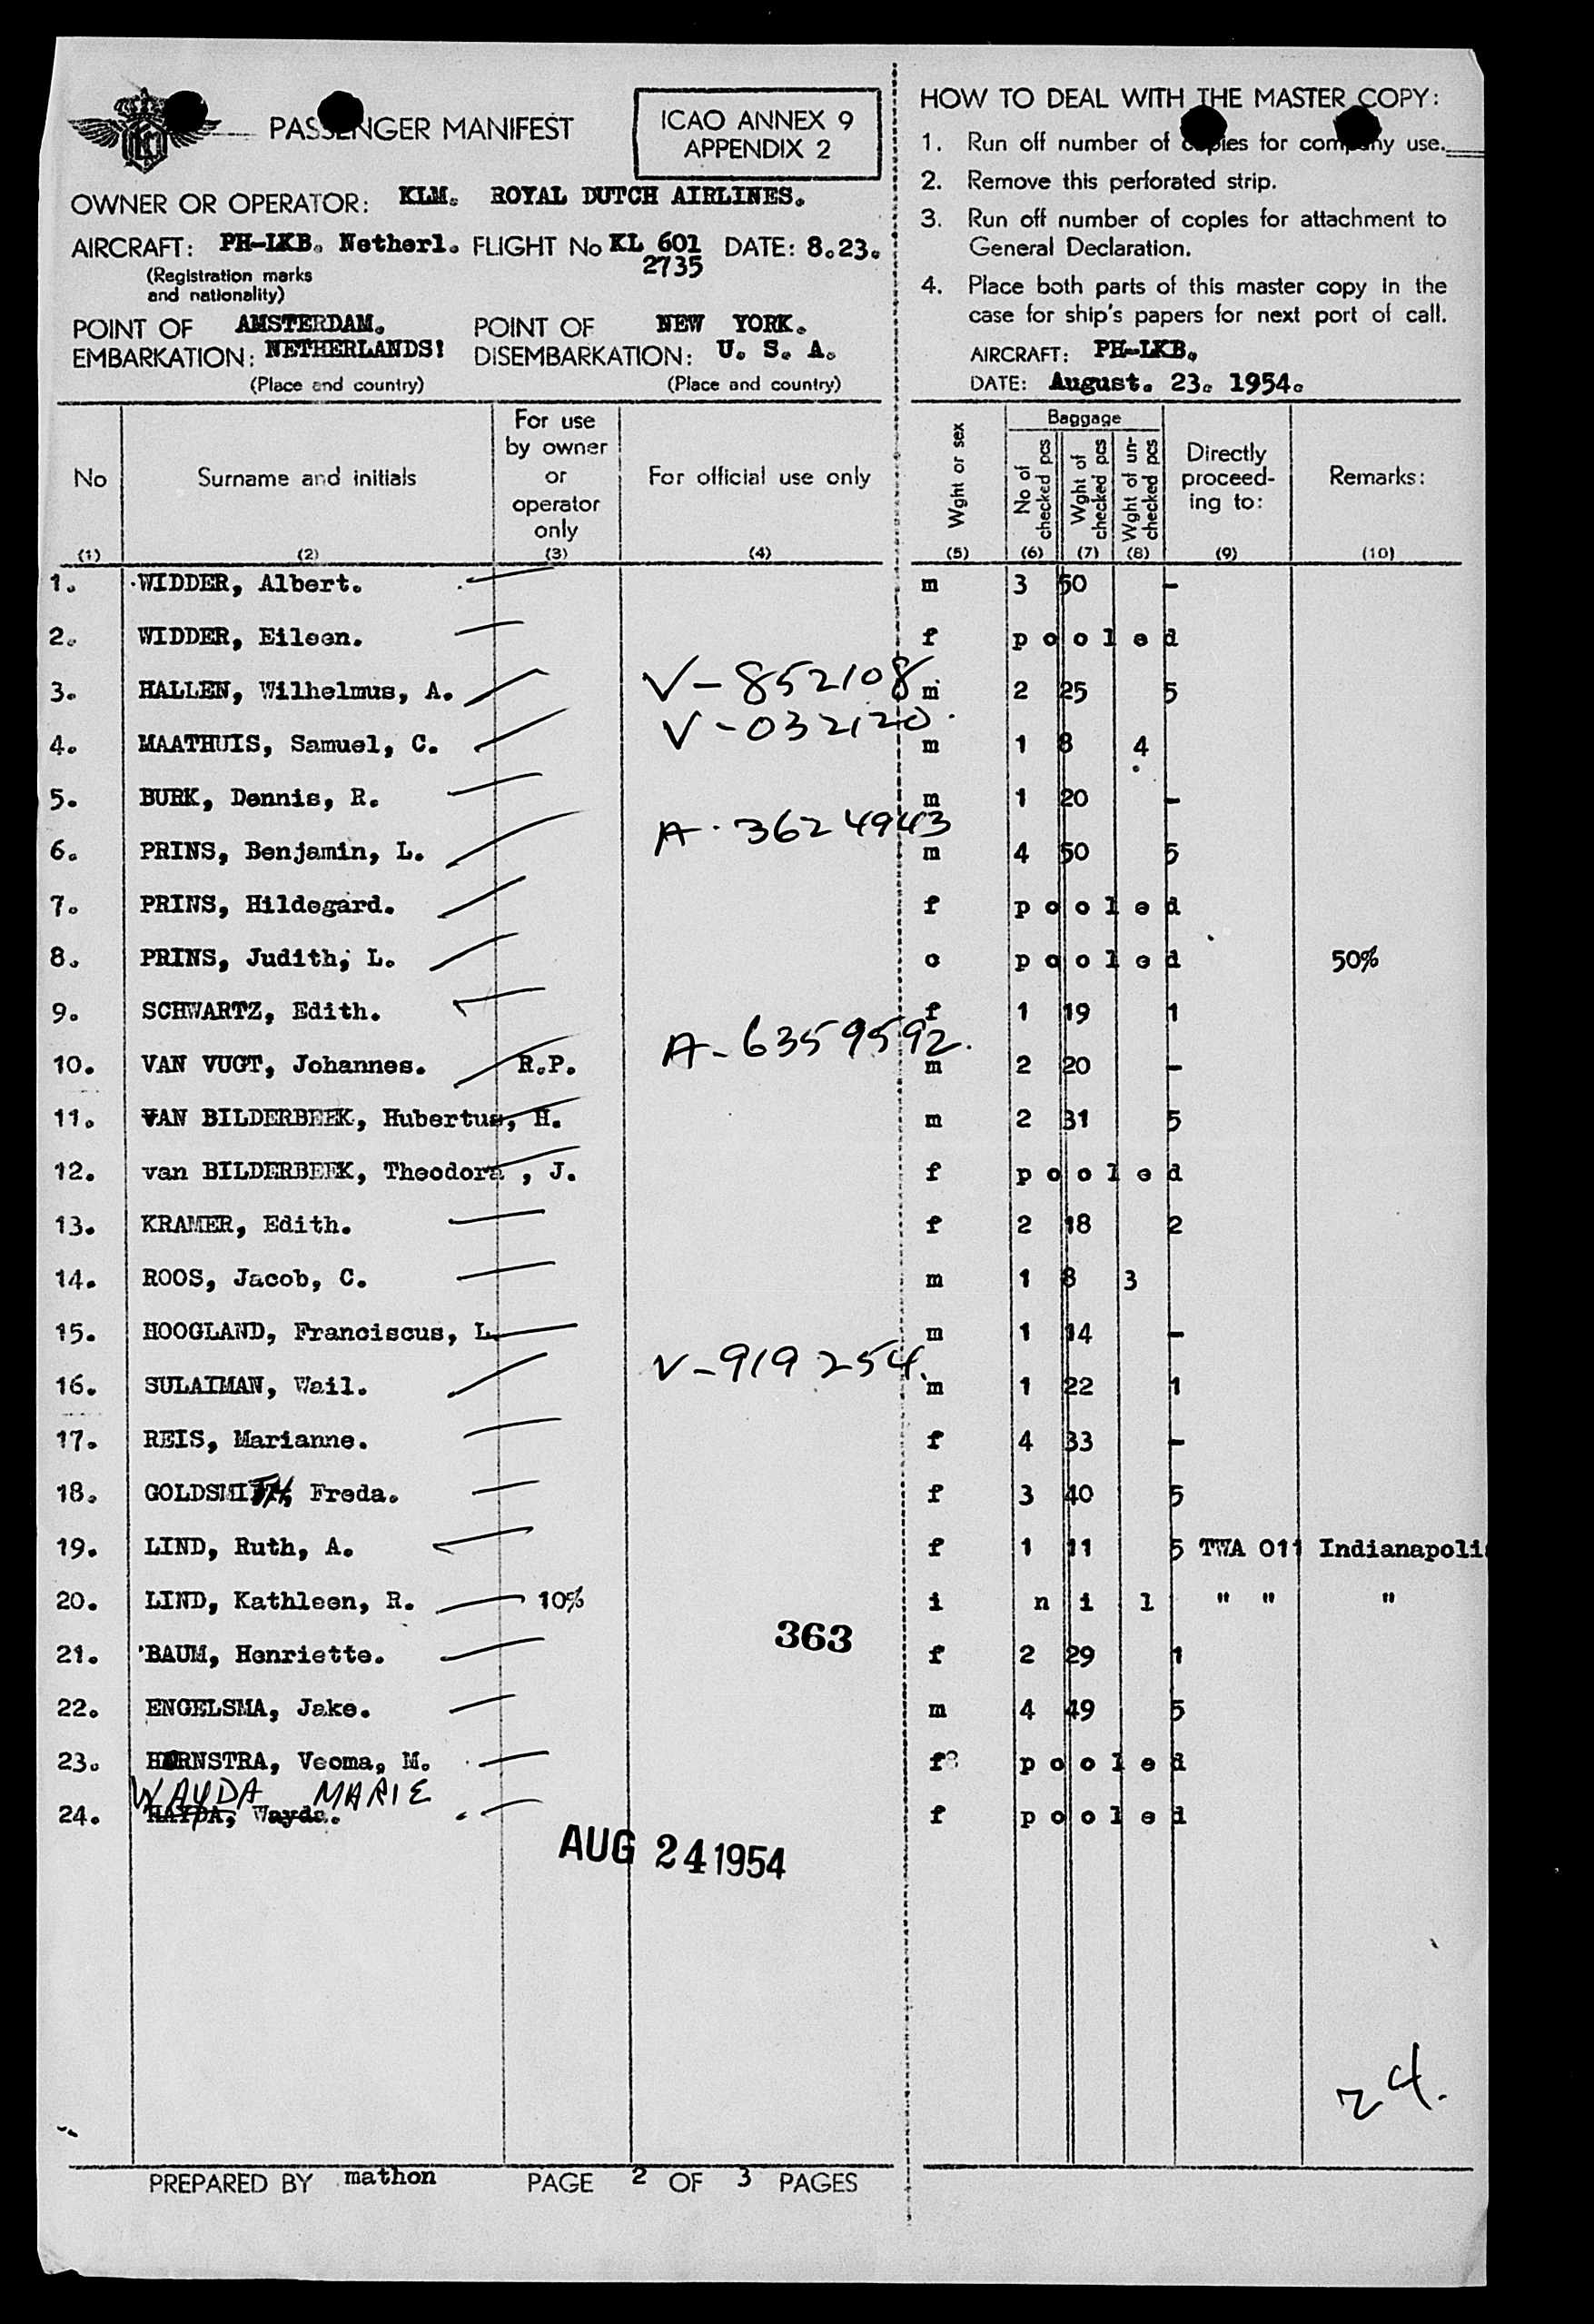 PASSENGER MANIFEST
ICAO ANNEX 9
APPENDIX 2
OWNER OR OPERATOR: KLM. ROYAL DUTCH AIRLINES.
AIRCRAFT: PH-LKB. Netherl. FLIGHT No KL 601 DATE: 8.23.
2735
(Registration marks
and nationality)
POINT OF AMSTERDAM. POINT OF NEW YORK.
EMBARKATION: NETHERLANDS! DISEMBARKATION: U. S. A.
(Place and country) (Place and country)
HOW TO DEAL WITH THE MASTER COPY:
1. Run off number of copies for company use.
2. Remove this perforated strip.
3. Run off number of copies for attachment to
General Declaration.
4. Place both parts of this master copy in the
case for ship's papers for next port of call.
AIRCRAFT: PH-LKB.
DATE: August. 23. 1954.
No Surname and initials For use by owner or operator only For official use only Wght or sex Baggage No of checked pcs Wght of checked pcs Wght of un-checked pcs Directly proceed-ing to: Remarks:
(1) (2) (3) (4) (5) (6) (7) (8) (9) (10)
1. WIDDER, Albert. m 3 50 -
2. WIDDER, Eileen. f pooled
3. HALLEN, Wilhelmus, A. V-852108 m 2 25 5
4. MAATHUIS, Samuel, C. V-032120. m 1 8 4
5. BURK, Dennis, R. m 1 20 -
6. PRINS, Benjamin, L. A-3624943 m 4 50 5
7. PRINS, Hildegard. f pooled
8. PRINS, Judith, L. c pooled 50%
9. SCHWARTZ, Edith. f 1 19 1
10. VAN VUGT, Johannes. R.P. A-6359592. m 2 20 -
11. VAN BILDERBEEK, Hubertus, H. m 2 31 5
12. van BILDERBEEK, Theodora, J. f pooled
13. KRAMER, Edith. f 2 18 2
14. ROOS, Jacob, C. m 1 8 3
15. HOOGLAND, Franciscus, L. m 1 14 -
16. SULAIMAN, Wail. V-919254. m 1 22 1
17. REIS, Marianne. f 4 33 -
18. GOLDSMITH, Freda. f 3 40 5
19. LIND, Ruth, A. f 1 11 5 TWA 011 Indianapolis
20. LIND, Kathleen, R. 10% i nil " " "
363
21. BAUM, Henriette. f 2 29 1
22. ENGELSMA, Jake. m 4 49 5
23. HORNSTRA, Veoma, M. f pooled
WAYDA MARIE
24. HAYDA, Wayda. f pooled
AUG 24 1954
24.
PREPARED BY mathon PAGE 2 OF 3 PAGES